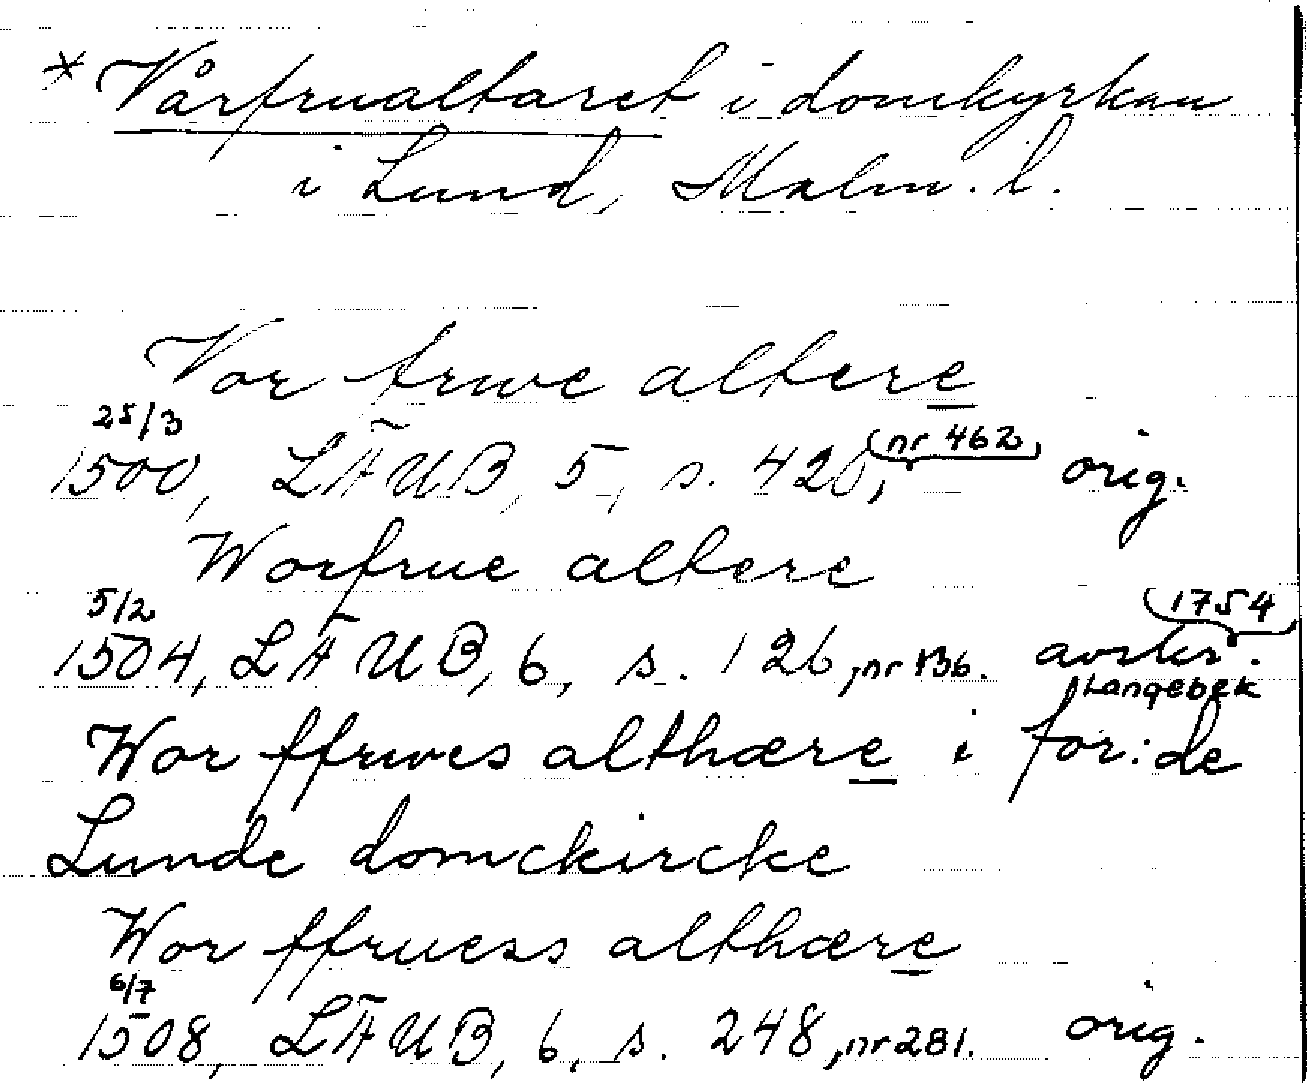 * Vårfrualtaret i domkyrkan
i Lund, Malm. l.
Vor frwe altere
25/3 1500, LÄUB, 5, s. 420, nr 462, orig.
Worfrue altere
5/2 1504, LÄUB, 6, s. 126, nr 136. avskr. 1754
Langebek
Wor ffrwes althære i for:de
Lunde domckircke
Wor ffruess althære
6/7 1508, LÄUB, 6, s. 248, nr 281. orig.